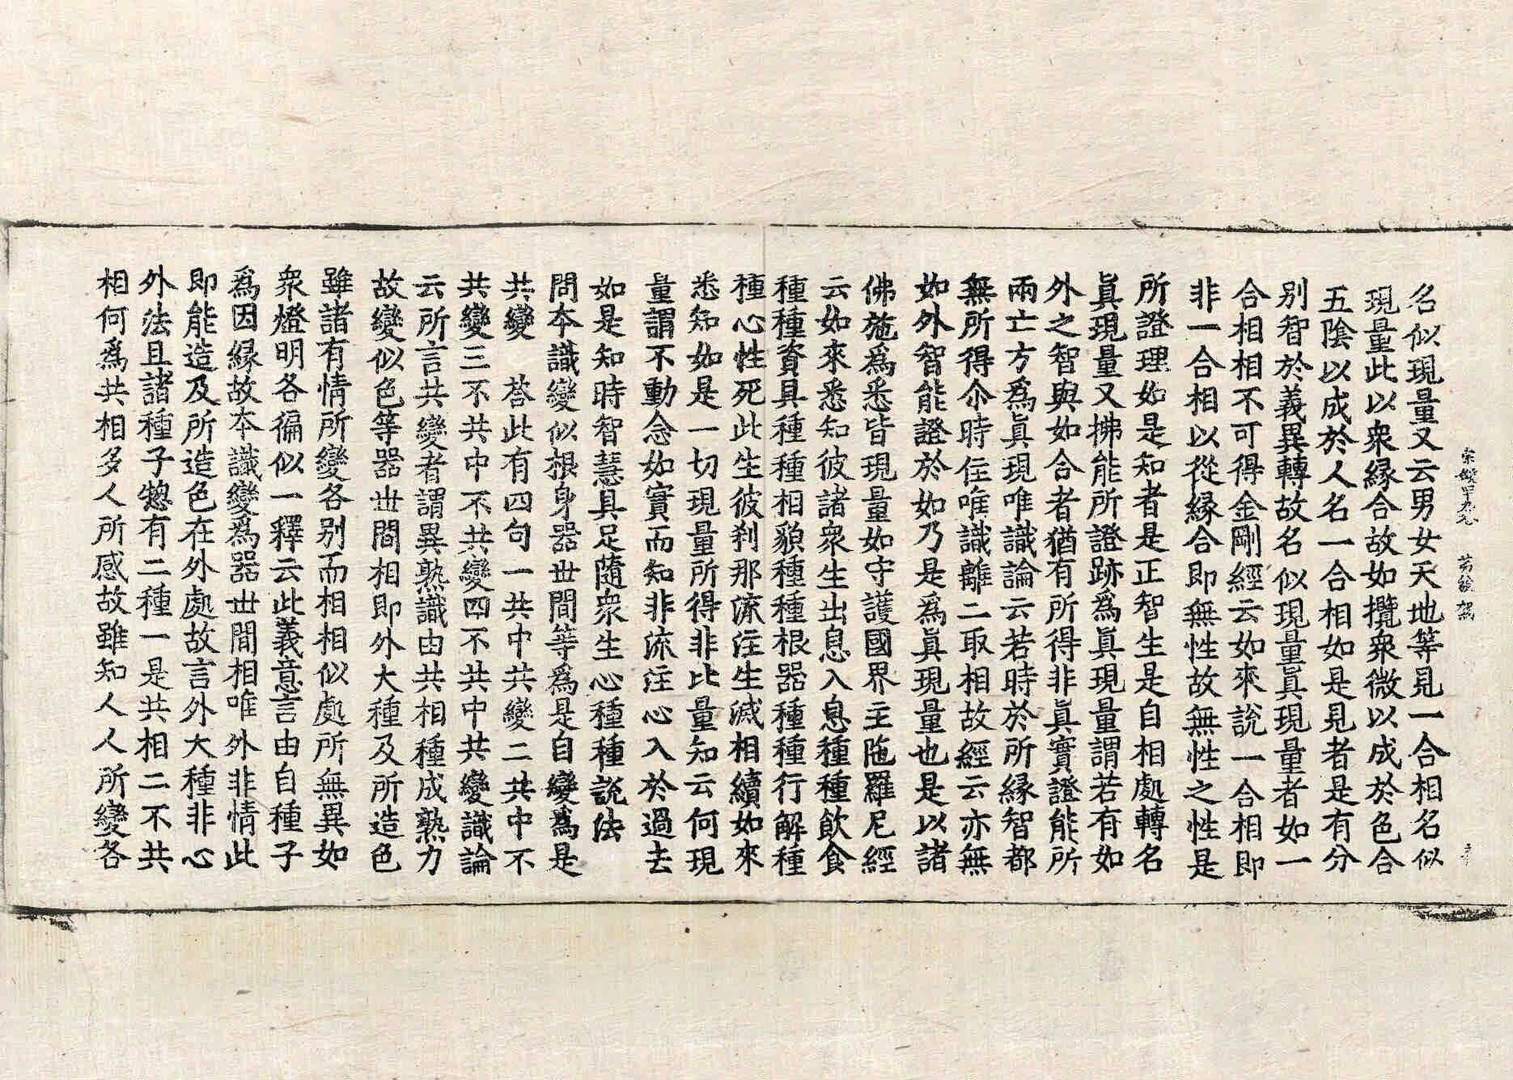 名似現量又云男女天地等見一合相名似
現量此以衆縁合故如攬衆微以成於色合
五陰以成於人名一合相如是見者是有分
别智於義異轉故名似現量眞現量者如一
合相相不可得金剛經云如來說一合相即
非一合相以從縁合即無性故無性之性是
所證理如是知者是正智生是自相處轉名
眞現量又拂能所證跡爲眞現量謂若有如
外之智與如合者猶有所得非眞實證能所
兩亡方爲眞現唯識論云若時於所縁智都
無所得尒時住唯識離二取相故經云亦無
如外智能證於如乃是爲眞現量也是以諸
佛施爲悉皆現量如守護國界主陁羅尼經
云如來悉知彼諸衆生出息入息種種飲食
種種資具種種相貌種種根器種種行解種
種心性死此生彼刹那流注生滅相續如來
悉知如是一切現量所得非比量知云何現
量謂不動念如實而知非流注心入於過去
如是知時智慧具足隨衆生心種種說法
問本識變似根身器世間等爲是自變爲是
共變　荅此有四句一共中共變二共中不
共變三不共中不共變四不共中共變識論
云所言共變者謂異熟識由共相種成熟力
故變似色等器世間相即外大種及所造色
雖諸有情所變各别而相相似處所無異如
衆燈明各徧似一釋云此義意言由自種子
爲因縁故本識變爲器世間相唯外非情此
即能造及所造色在外處故言外大種非心
外法且諸種子㧾有二種一是共相二不共
相何爲共相多人所感故雖知人人所變各